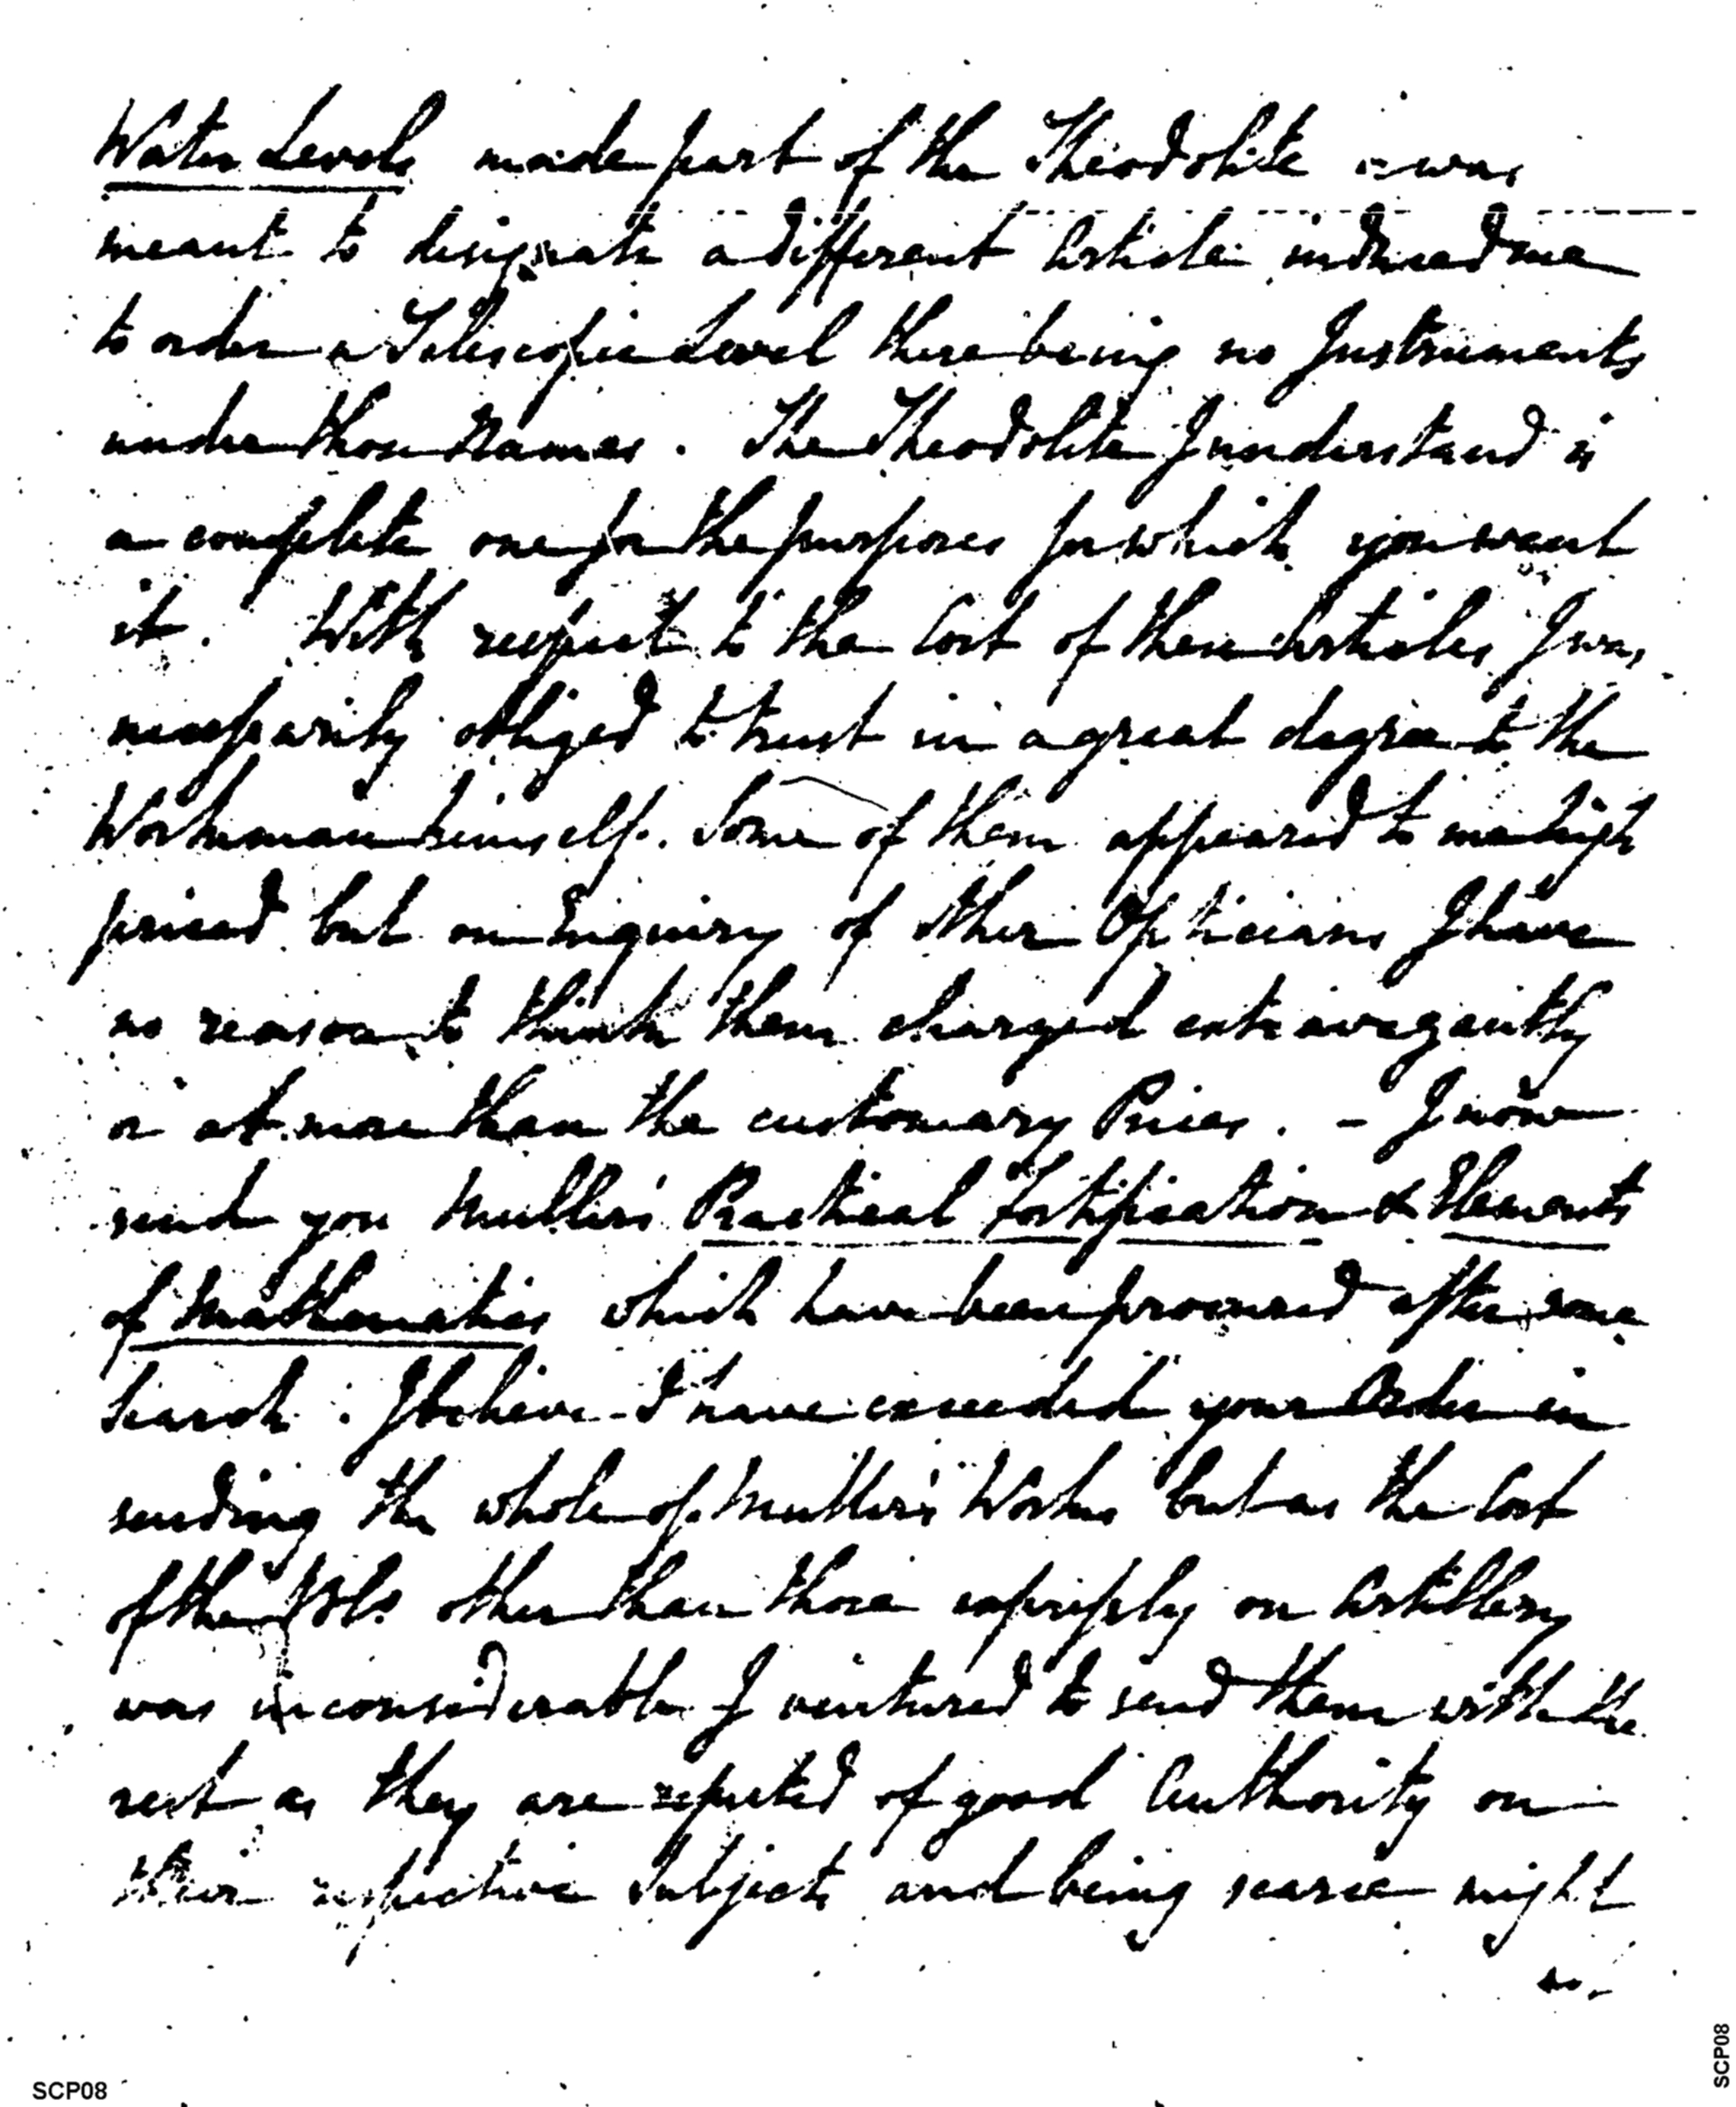 Water Levels made part of the Theodolite or was
meant to designate a different Article induced me
to order a Telescopic Level there being no Instruments
under those Names. The Theodolite I understand is
a complete one for the purposes for which you want
it. With respect to the Cost of these Articles I was
necessarily obliged to trust in a great degree to the
Workman himself. Some of them appeared to me high
priced but on Inquiry of other Opticians I have
no reason to think them charged extravagantly
or at more than the customary Prices. - I now
send you Mullers Practical Fortification & Elements
of Mathematics which have been procured after some
Search. I believe I have exceeded your Order in
sending the whole of Muller's Works but as the Cost
of the Vols. other than those expressly on Artillery
was inconsiderable I ventured to send them with the
rest as they are reputed of good Authority on
their respective Subjects and being scarce might
SCP08
SCP08